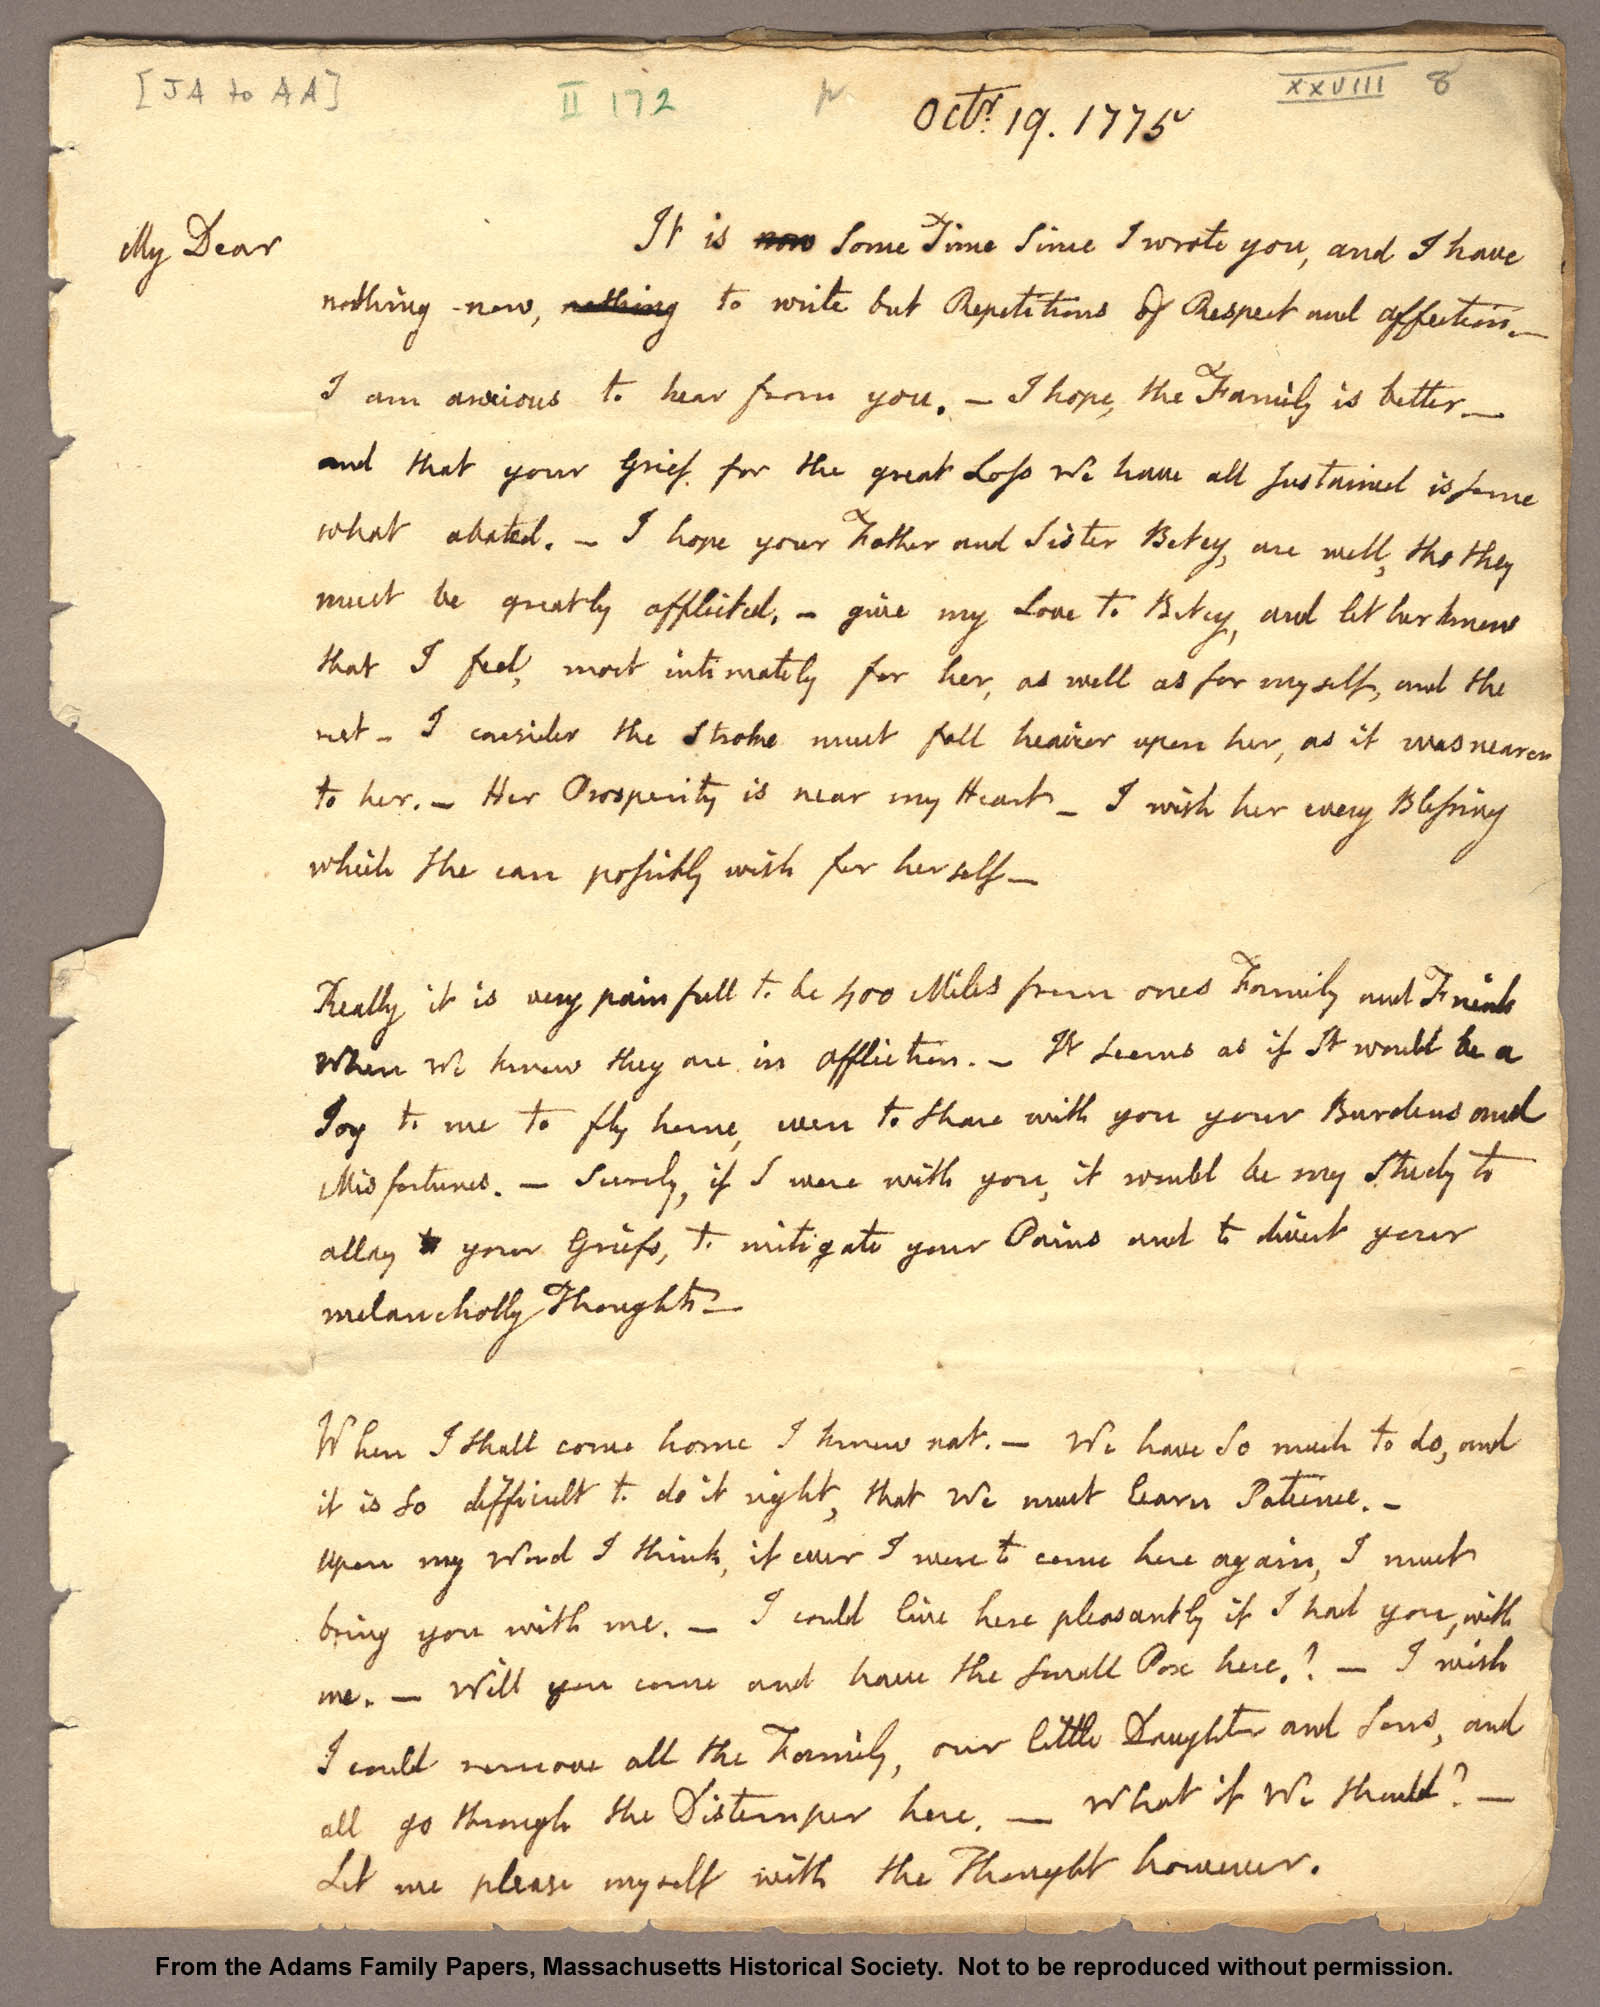 [JA to AA]
II 172
XXVIII 8
Octr. 19. 1775
My Dear
It is now some Time since I wrote you, and I have
nothing now, nothing to write but Repetitions of Respect and affection. —
I am anxious to hear from you. — I hope, the Family is better —
and that your Grief for the great Loss We have all sustained is some
what abated. — I hope your Father and Sister Betcy, are well, tho they
must be greatly afflicted. — give my Love to Betcy, and let her know
that I feel, most intimately for her, as well as for myself, and the
rest — I consider the Stroke must fall heavier upon her, as it was nearer
to her. — Her Prosperity is near my Heart — I wish her every Blessing
which she can possibly wish for herself —
Really it is very painfull to be 400 Miles from ones Family and Friends
when We know they are in affliction. — It seems as if It would be a
Joy to me to fly home, even to share with you your Burdens and
Misfortunes. — Surely, if I were with you, it would be my Study to
allay your Griefs, to mitigate your Pains and to divert your
melancholly Thoughts —
When I shall come home I know not. — We have so much to do, and
it is so difficult to do it right, that We must learn Patience. —
Upon my Word I think, if ever I were to come here again, I must
bring you with me. — I could live here pleasantly if I had you, with
me. — Will you come and have the small Pox here.? — I wish
I could remove all the Family, our little Daughter and Sons, and
all go through the Distemper here. — What if We should? —
Let me please myself with the Thought however.
From the Adams Family Papers, Massachusetts Historical Society. Not to be reproduced without permission.